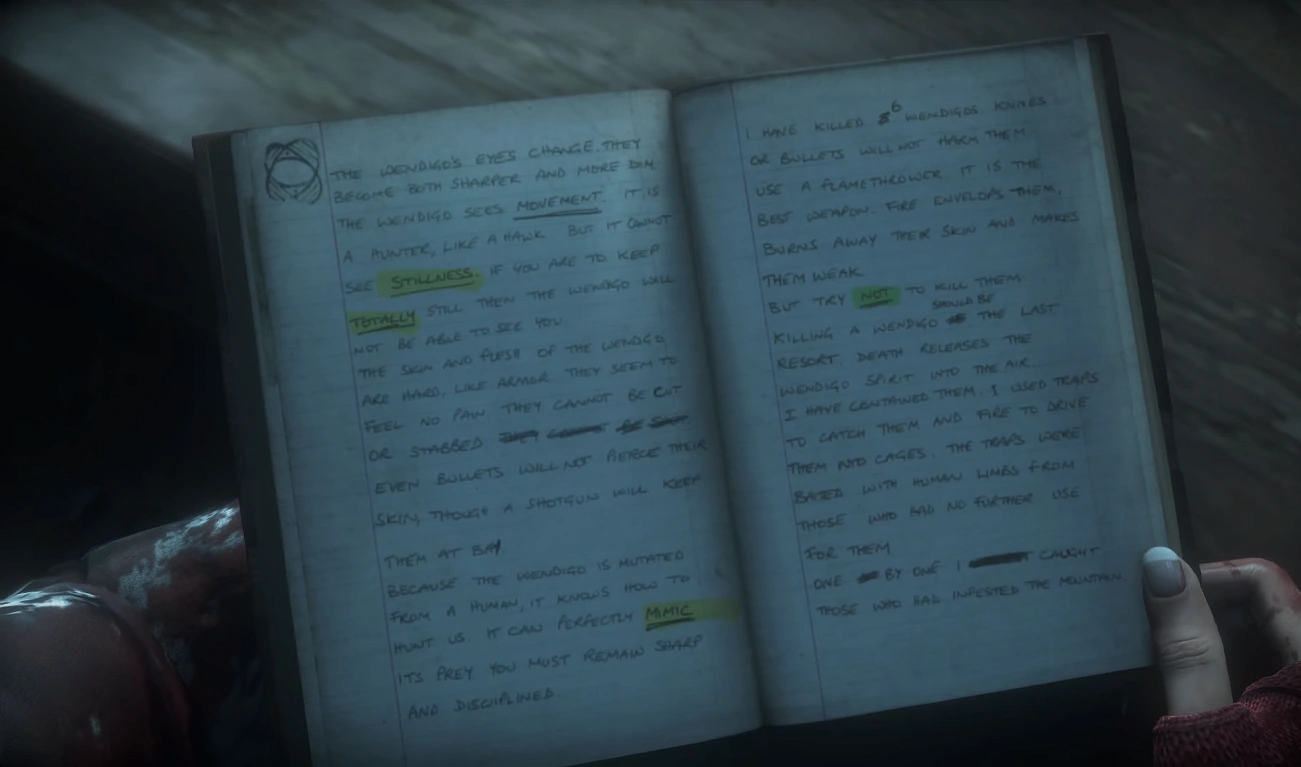 THE WENDIGO'S EYES CHANGE. THEY
BECOME BOTH SHARPER AND MORE DIM.
THE WENDIGO SEES MOVEMENT. IT IS
A HUNTER, LIKE A HAWK BUT IT CANNOT
SEE STILLNESS. IF YOU ARE TO KEEP
TOTALLY STILL THEN THE WENDIGO WILL
NOT BE ABLE TO SEE YOU
THE SKIN AND FLESH OF THE WENDIGO
ARE HARD, LIKE ARMOR THEY SEEM TO
FEEL NO PAIN THEY CANNOT BE CUT
OR STABBED THEY CANNOT BE SHOT
EVEN BULLETS WILL NOT PIERCE THEIR
SKIN, THOUGH A SHOTGUN WILL KEEP
THEM AT BAY.
BECAUSE THE WENDIGO IS MUTATED
FROM A HUMAN, IT KNOWS HOW TO
HUNT US. IT CAN PERFECTLY MIMIC
ITS PREY YOU MUST REMAIN SHARP
AND DISCIPLINED
I HAVE KILLED 6 WENDIGOS KNIVES
OR BULLETS WILL NOT HARM THEM
USE A FLAMETHROWER IT IS THE
BEST WEAPON. FIRE ENVELOPS THEM,
BURNS AWAY THEIR SKIN AND MAKES
THEM WEAK
BUT TRY NOT TO KILL THEM
KILLING A WENDIGO SHOULD BE THE LAST
RESORT DEATH RELEASES THE
WENDIGO SPIRIT INTO THE AIR.
I HAVE CONTAINED THEM. I USED TRAPS
TO CATCH THEM AND FIRE TO DRIVE
THEM INTO CAGES. THE TRAPS WERE
BAITED WITH HUMAN LIMBS FROM
THOSE WHO HAD NO FURTHER USE
FOR THEM
ONE BY ONE I CAUGHT
THOSE WHO HAD INFESTED THE MOUNTAIN.